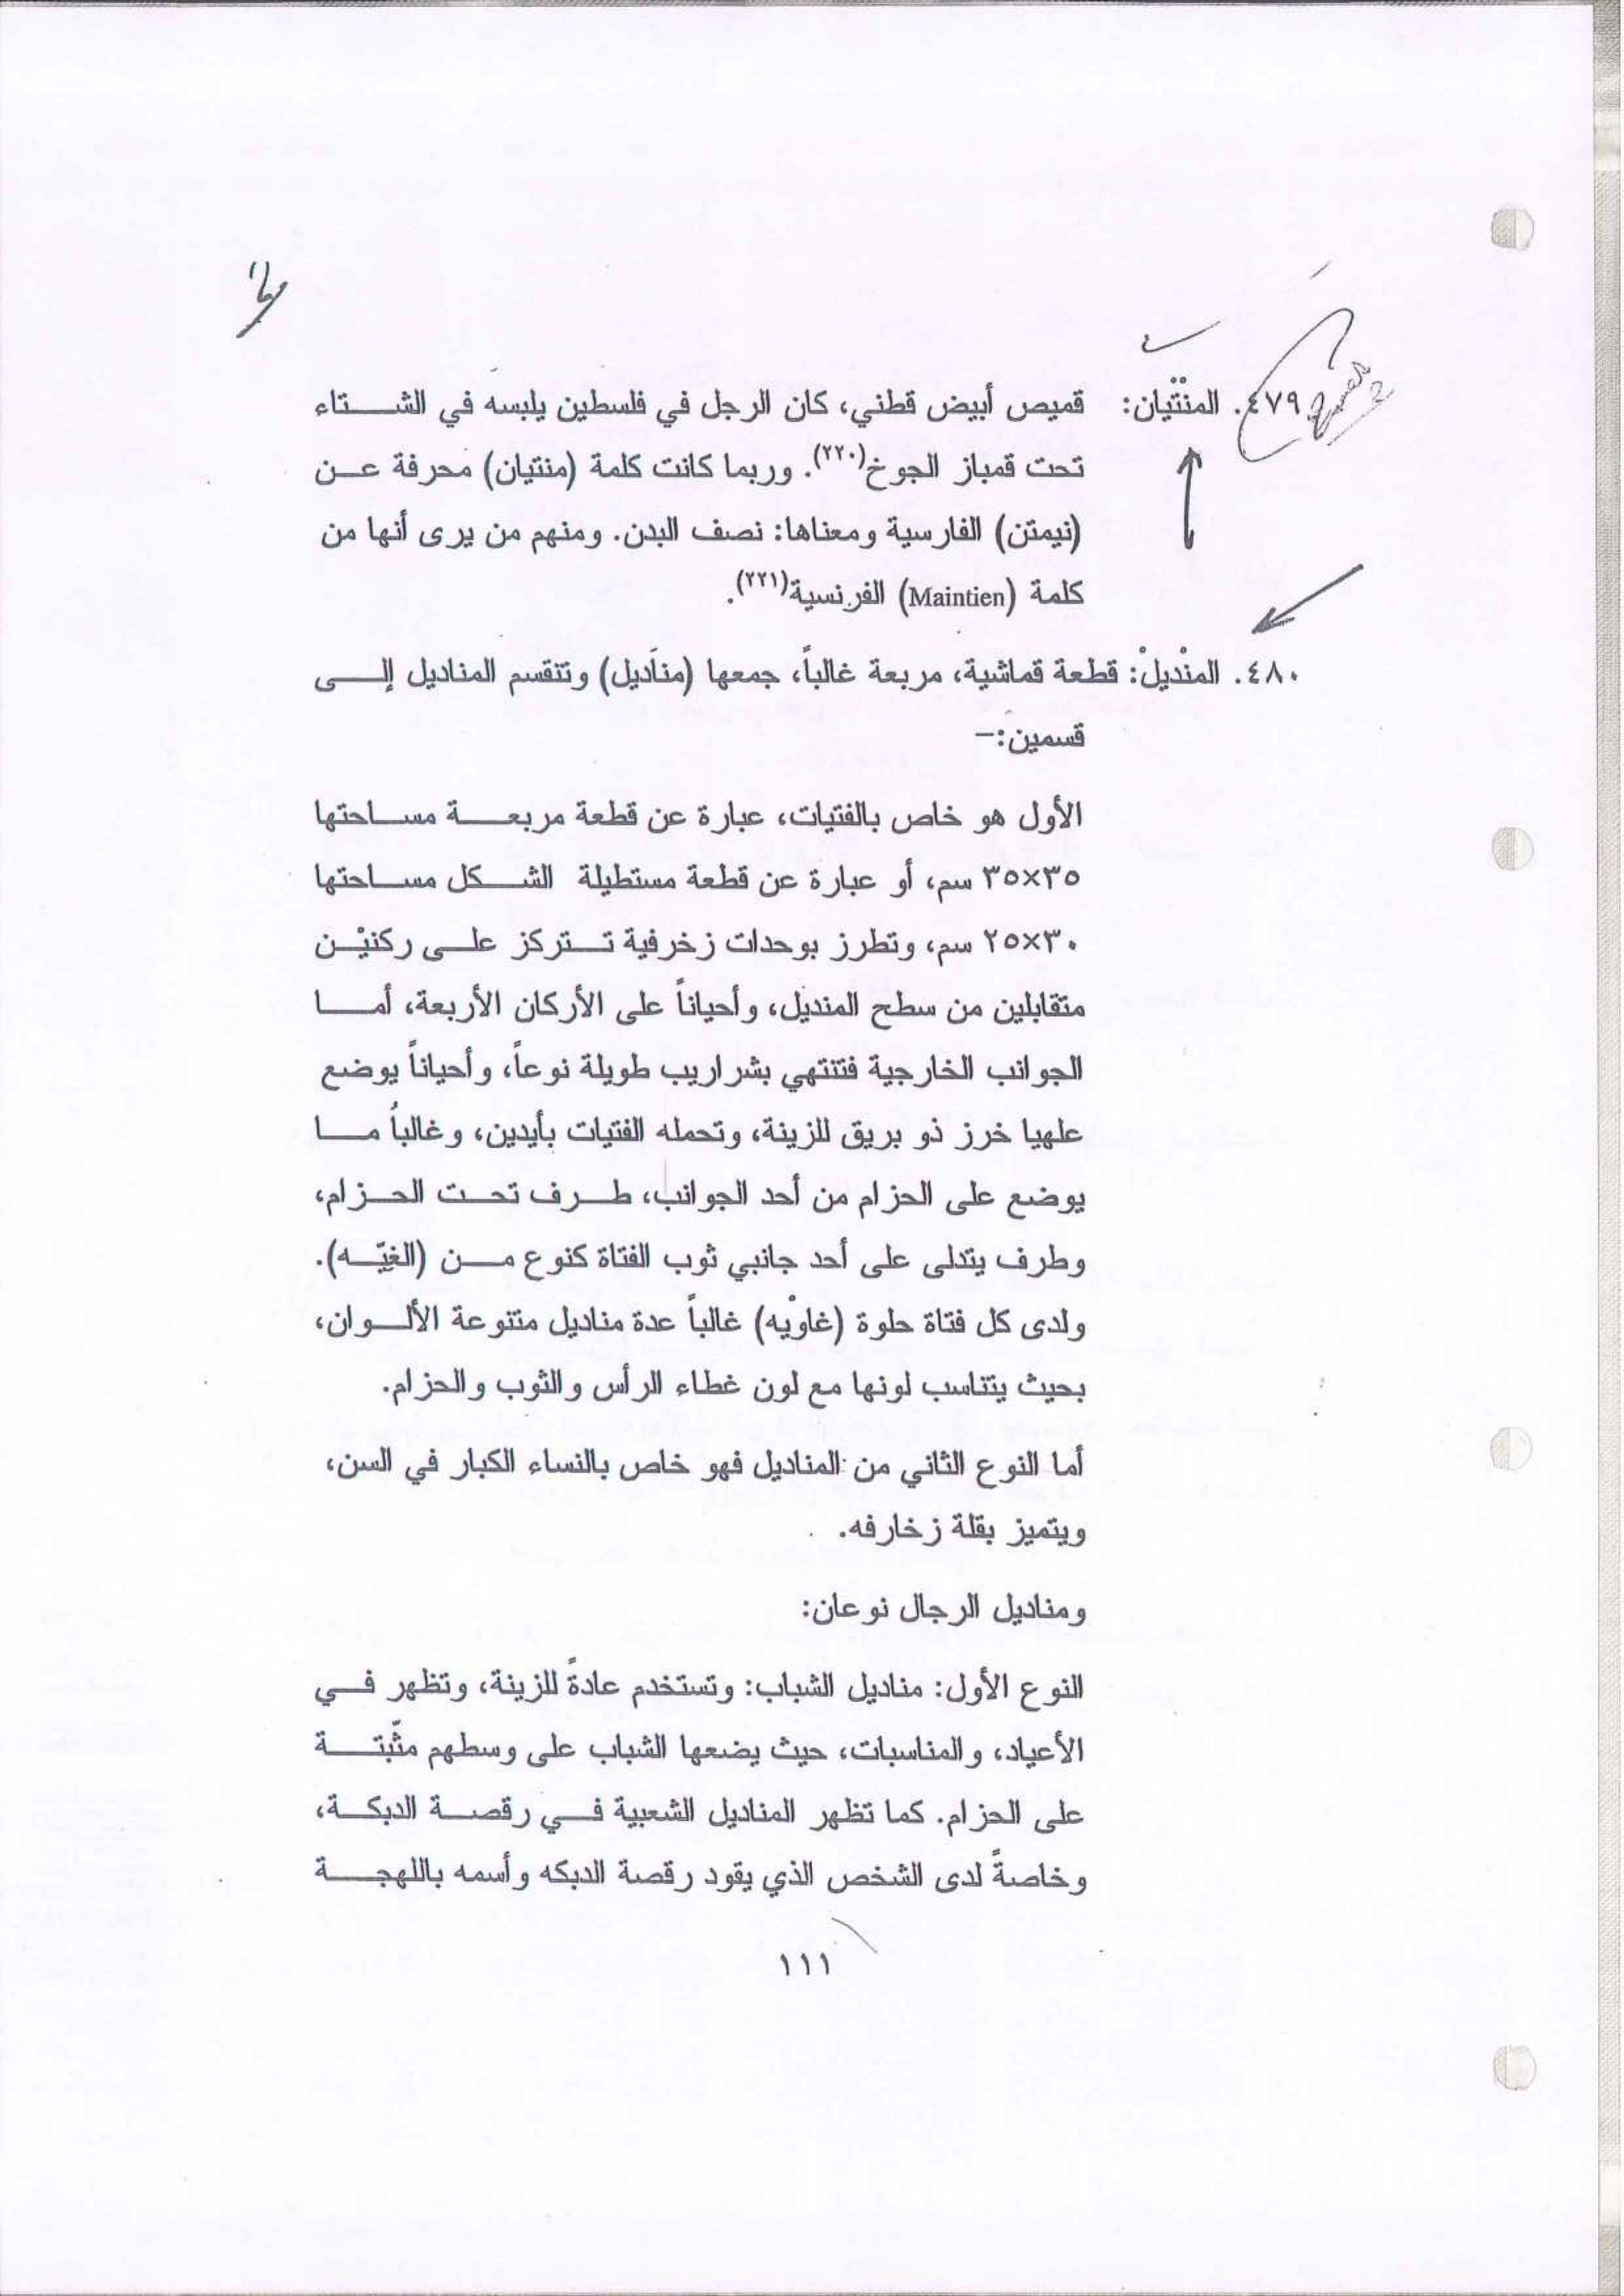 ٤٧٩. المنتْيان: قميص أبيض قطني، كان الرجل في فلسطين يلبسه في الشتاء
تحت قمباز الجوخ(٢٢٠). وربما كانت كلمة (منتيان) محرفة عن
(نيمتن) الفارسية ومعناها: نصف البدن. ومنهم من يرى أنها من
كلمة (Maintien) الفرنسية(٢٢١).
٤٨٠. المنْديلْ: قطعة قماشية، مربعة غالباً، جمعها (مناَديل) وتنقسم المناديل إلى
قسمين:–
الأول هو خاص بالفتيات، عبارة عن قطعة مربعة مساحتها
٣٥×٣٥ سم، أو عبارة عن قطعة مستطيلة الشكل مساحتها
٢٥×٣٠ سم، وتطرز بوحدات زخرفية تتركز على ركنيْن
متقابلين من سطح المنديل، وأحياناً على الأركان الأربعة، أما
الجوانب الخارجية فتنتهي بشراريب طويلة نوعاً، وأحياناً يوضع
علهيا خرز ذو بريق للزينة، وتحمله الفتيات بأيدين، وغالباُ ما
يوضع على الحزام من أحد الجوانب، طرف تحت الحزام،
وطرف يتدلى على أحد جانبي ثوب الفتاة كنوع من (الغيّه).
ولدى كل فتاة حلوة (غاويْه) غالباً عدة مناديل متنوعة الألوان،
بحيث يتناسب لونها مع لون غطاء الرأس والثوب والحزام.
أما النوع الثاني من المناديل فهو خاص بالنساء الكبار في السن،
ويتميز بقلة زخارفه.
ومناديل الرجال نوعان:
النوع الأول: مناديل الشباب: وتستخدم عادةً للزينة، وتظهر في
الأعياد، والمناسبات، حيث يضعها الشباب على وسطهم مثّبتة
على الحزام. كما تظهر المناديل الشعبية في رقصة الدبكة،
وخاصةً لدى الشخص الذي يقود رقصة الدبكه وأسمه باللهجة
١١١